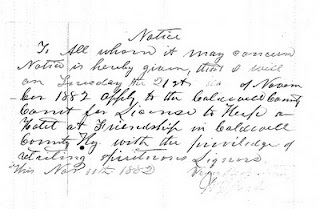 Notice
To All whom it may concern
Notice is hereby given, that I will
on Tuesday the 21st of Novem
ber 1882 apply to the Caldwell County
Court for License to Keep a
Hotel at Friendship in Caldwell
County Ky. with the priviledge of
retailing spirituous Liquors
this Nov 11th 1882